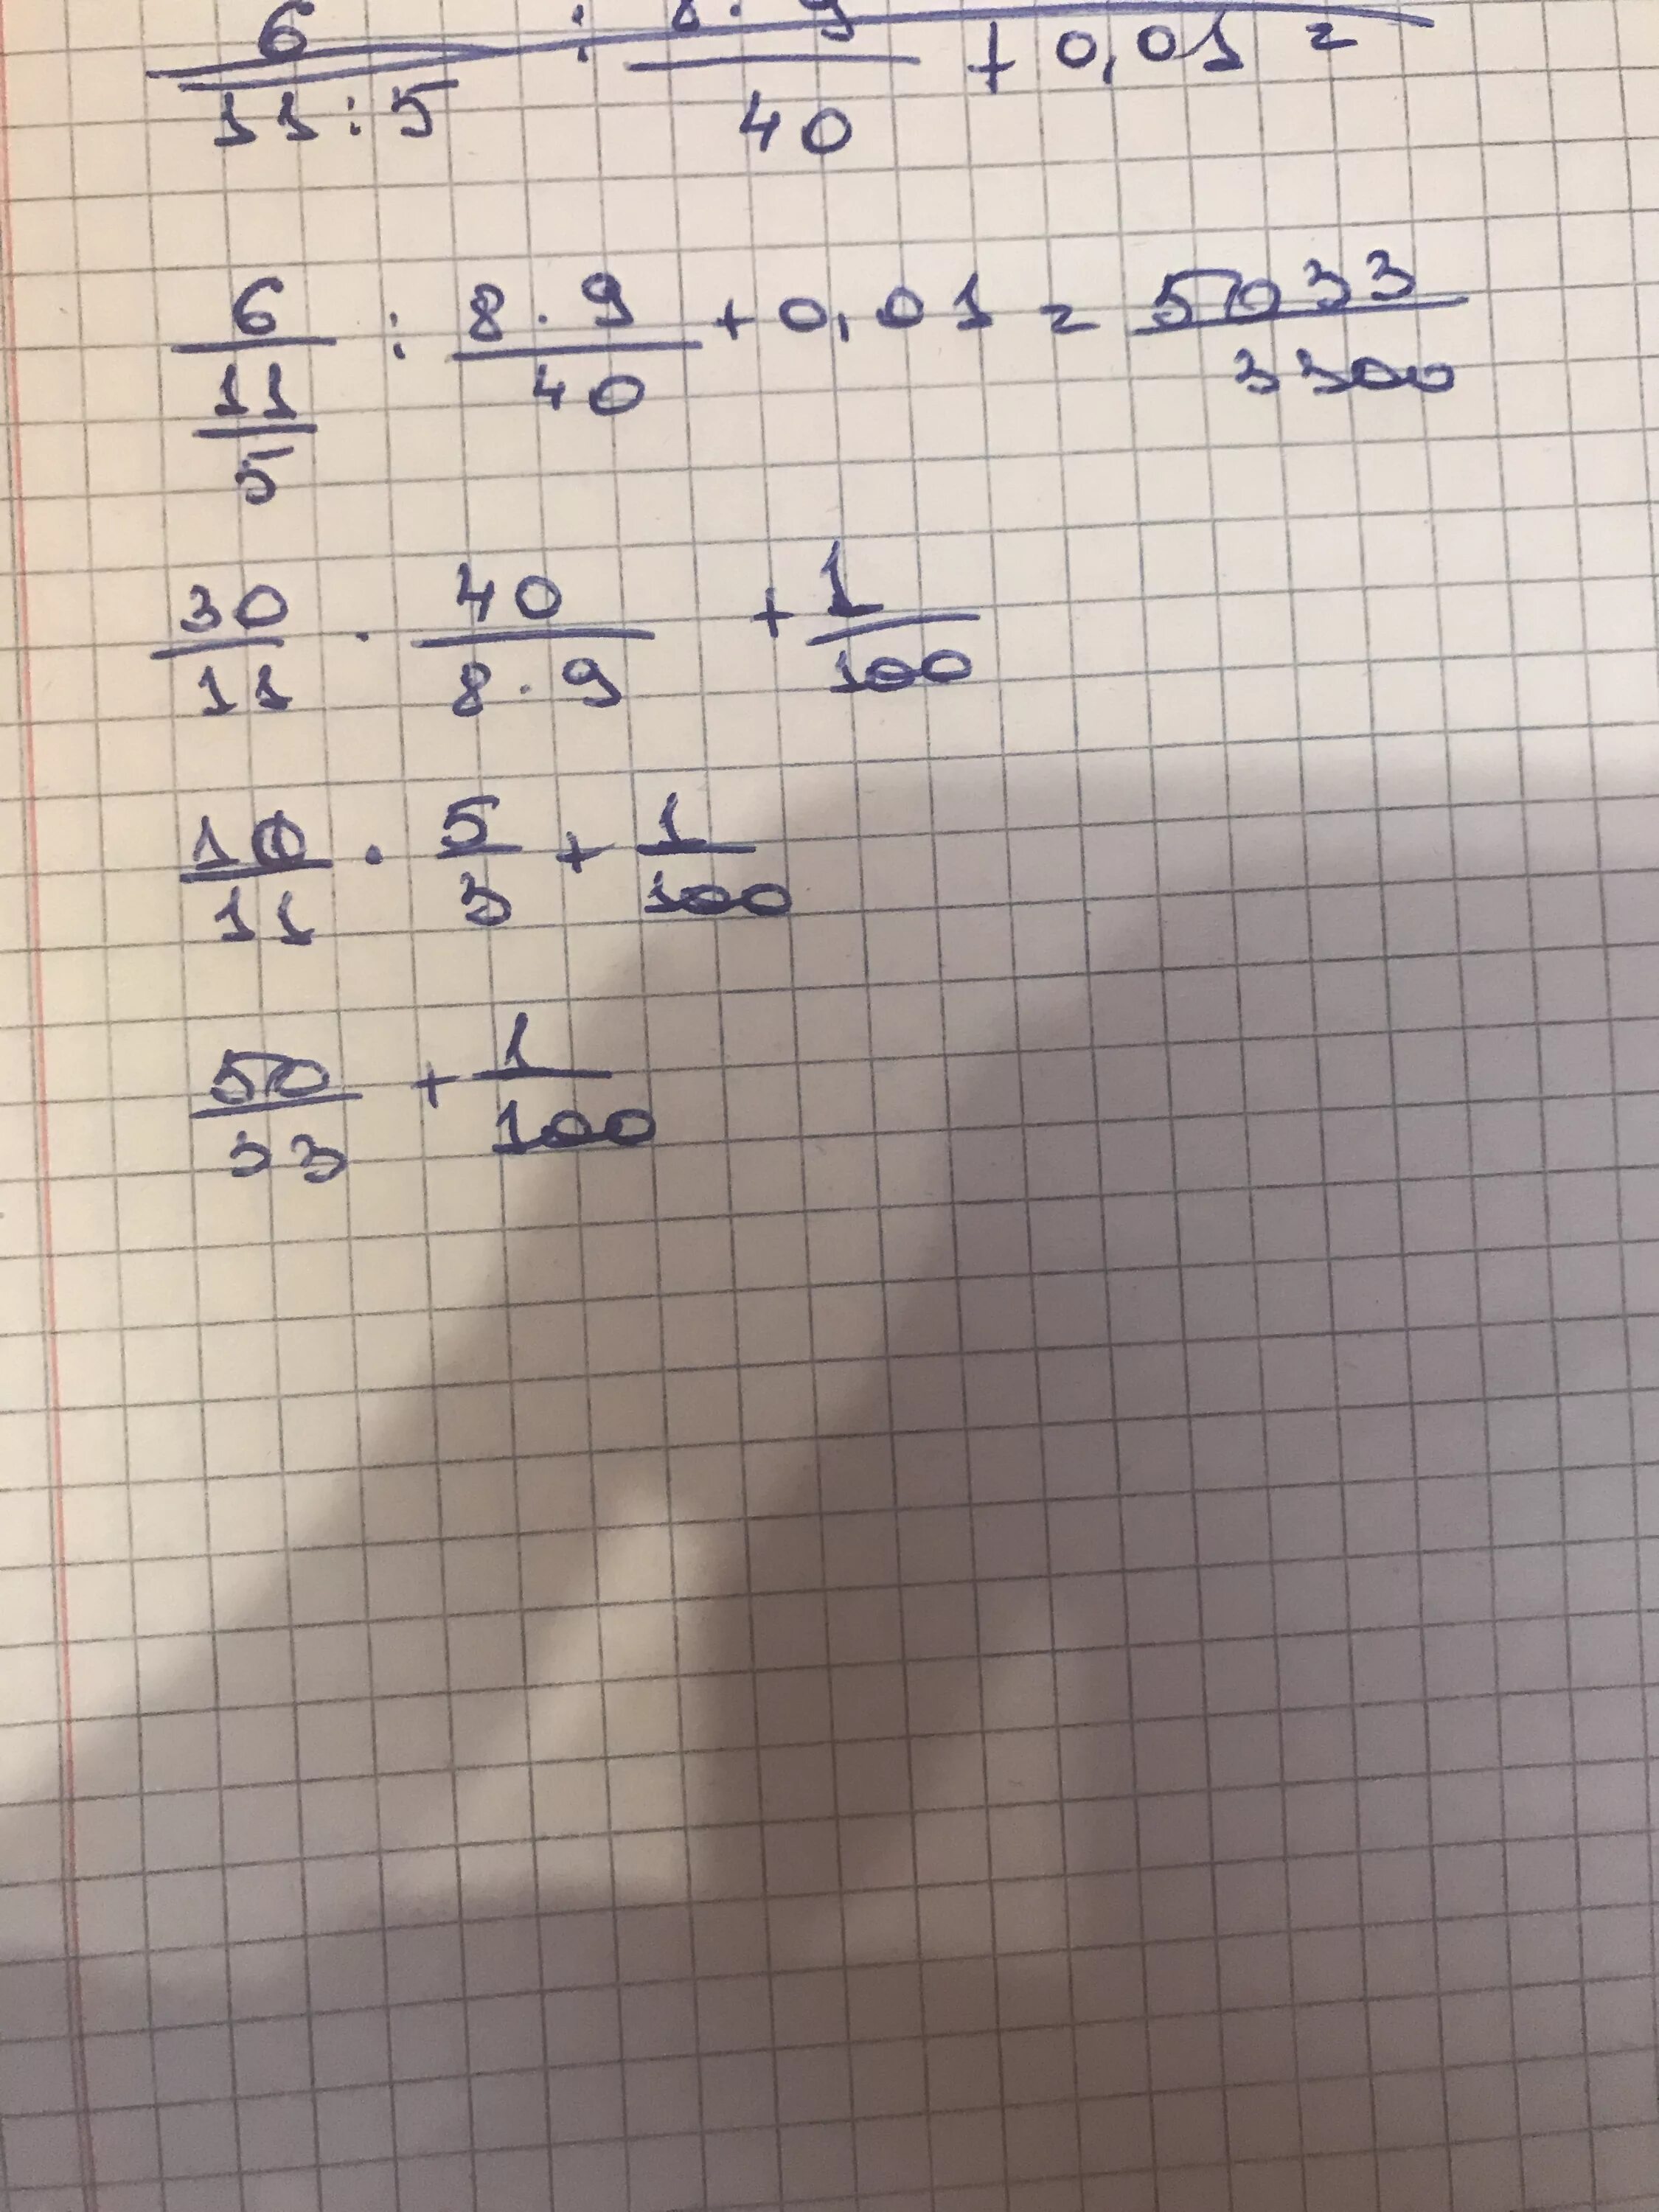 6/(11:5) : (8·9)/40 + 0,01 =
6/(11/5) : (8·9)/40 + 0,01 = 5033/3300
30/11 · 40/(8·9) + 1/100
10/11 · 5/3 + 1/100
50/33 + 1/100